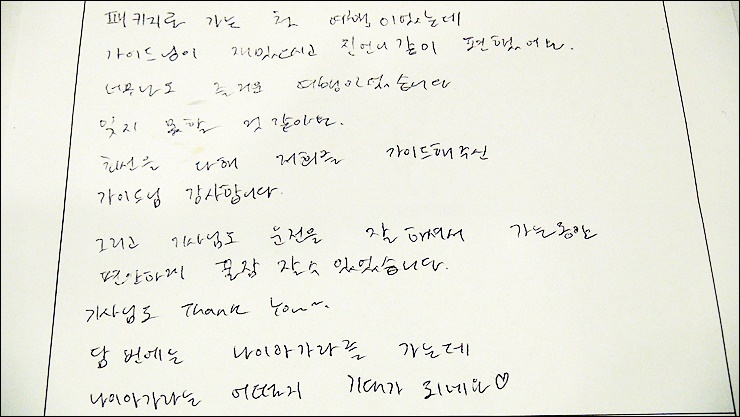 패키지로 가는 첫 여행이었는데
가이드님이 재밌으시고 친언니같이 편했어요.
너무나도 즐거운 여행이었습니다
잊지 못할 것 같아요.
최선을 다해 저희를 가이드해주신
가이드님 감사합니다.
그리고 기사님도 운전을 잘 해주셔서 가는동안
편안하게 꿀잠 잘수 있었습니다.
기사님도 Thank you~.
담 번에는 나이아가라를 가는데
나이아가라는 어떨지 기대가 되네요♡